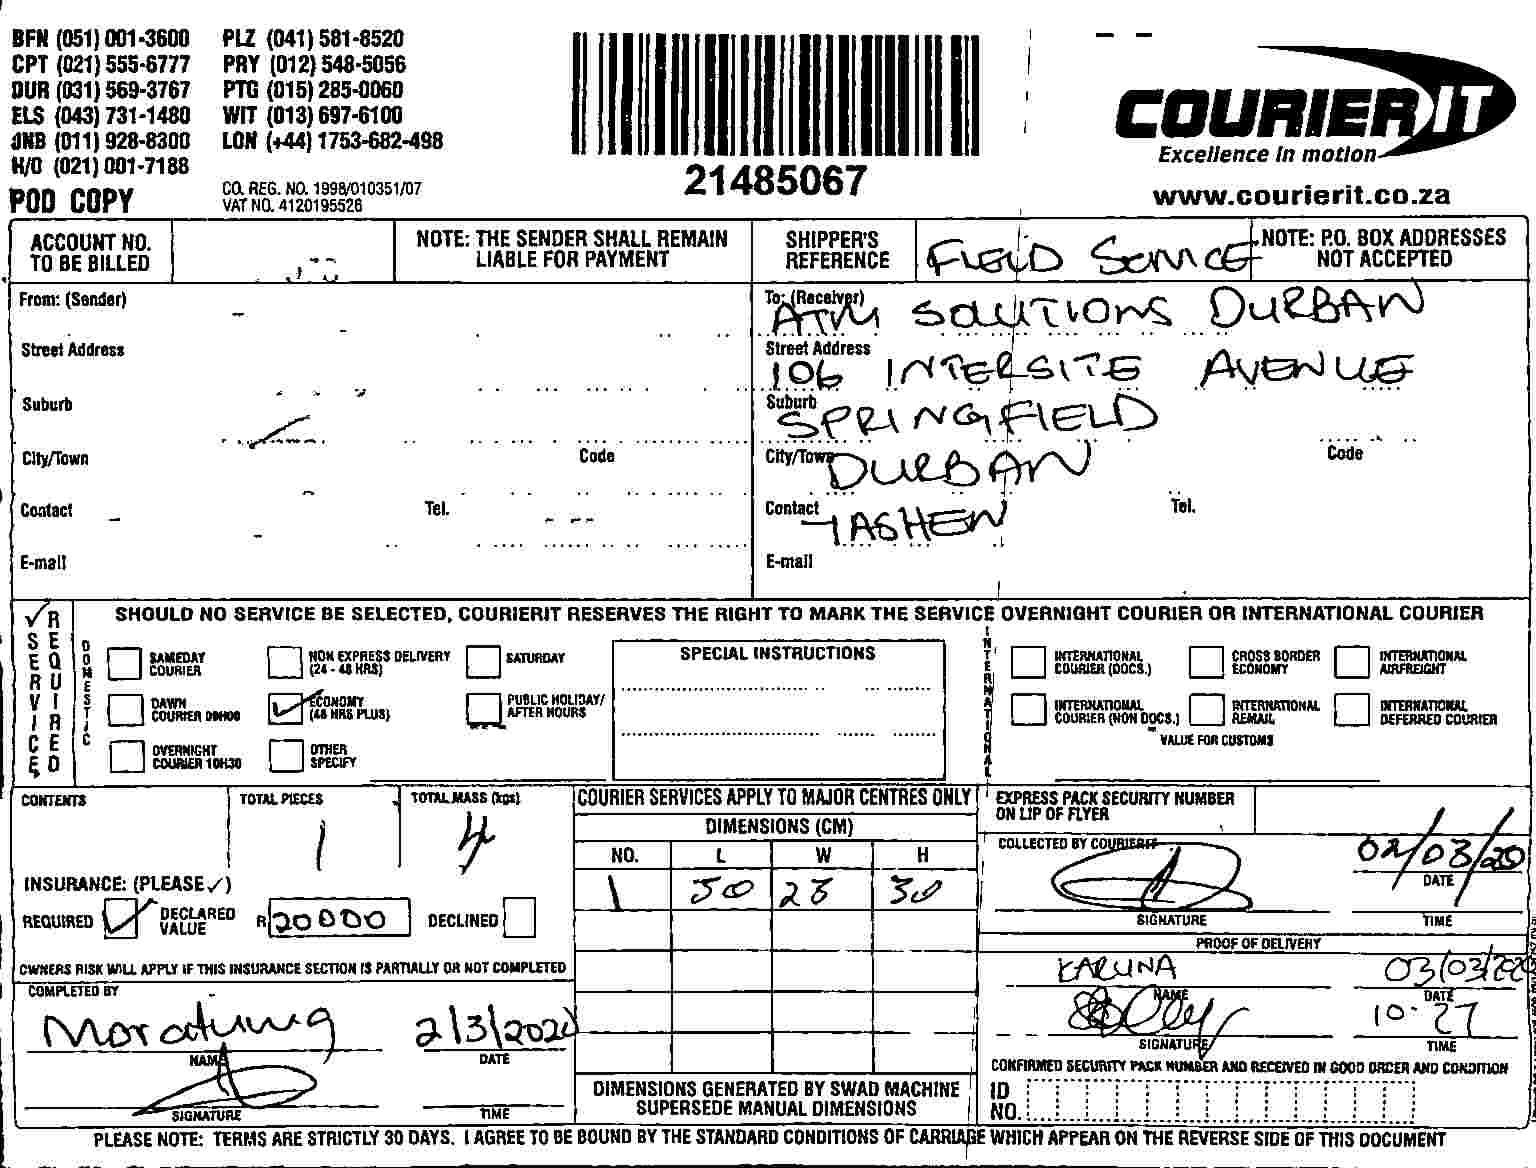 BFN (051) 001-3600 PLZ (041) 581-8520
CPT (021) 555-6777 PRY (012) 548-5056
DUR (031) 569-3767 PTG (015) 285-0060
ELS (043) 731-1480 WIT (013) 697-6100
JNB (011) 928-8300 LON (+44) 1753-682-498
H/O (021) 001-7188
POD COPY
CO. REG. NO. 1998/010351/07
VAT NO. 4120195526
21485067
COURIER IT
Excellence in motion
www.courierit.co.za
ACCOUNT NO. TO BE BILLED
NOTE: THE SENDER SHALL REMAIN LIABLE FOR PAYMENT
SHIPPER'S REFERENCE FIELD SERVICE
NOTE: P.O. BOX ADDRESSES NOT ACCEPTED
From: (Sender)
Street Address
Suburb
City/Town Code
Contact Tel.
E-mail
To: (Receiver) ATM SOLUTIONS DURBAN
Street Address 106 INTERSITE AVENUE
Suburb SPRINGFIELD
City/Town DURBAN Code
Contact TASHEN Tel.
E-mail
SERVICE REQUIRED
SHOULD NO SERVICE BE SELECTED, COURIERIT RESERVES THE RIGHT TO MARK THE SERVICE OVERNIGHT COURIER OR INTERNATIONAL COURIER
DOMESTIC
SAMEDAY COURIER
NON EXPRESS DELIVERY (24 - 48 HRS)
SATURDAY
DAWN COURIER 09H00
ECONOMY (48 HRS PLUS)
PUBLIC HOLIDAY/ AFTER HOURS
OVERNIGHT COURIER 10H30
OTHER SPECIFY
SPECIAL INSTRUCTIONS
INTERNATIONAL
INTERNATIONAL COURIER (DOCS.)
CROSS BORDER ECONOMY
INTERNATIONAL AIRFREIGHT
INTERNATIONAL COURIER (NON DOCS.)
INTERNATIONAL REMAIL
INTERNATIONAL DEFERRED COURIER
VALUE FOR CUSTOMS
CONTENTS
TOTAL PIECES 1
TOTAL MASS (kgs) 4
INSURANCE: (PLEASE ✓)
REQUIRED ✓ DECLARED VALUE R 20000 DECLINED
OWNERS RISK WILL APPLY IF THIS INSURANCE SECTION IS PARTIALLY OR NOT COMPLETED
COMPLETED BY
2/3/2020
NAME DATE
SIGNATURE TIME
COURIER SERVICES APPLY TO MAJOR CENTRES ONLY
DIMENSIONS (CM)
NO. L W H
1 50 23 30
DIMENSIONS GENERATED BY SWAD MACHINE SUPERSEDE MANUAL DIMENSIONS
EXPRESS PACK SECURITY NUMBER ON LIP OF FLYER
COLLECTED BY COURIERIT 02/03/20
DATE
SIGNATURE TIME
PROOF OF DELIVERY
KARUNA 03/03/2020
NAME DATE
10.27
SIGNATURE TIME
CONFIRMED SECURITY PACK NUMBER AND RECEIVED IN GOOD ORDER AND CONDITION
ID NO.
PLEASE NOTE: TERMS ARE STRICTLY 30 DAYS. I AGREE TO BE BOUND BY THE STANDARD CONDITIONS OF CARRIAGE WHICH APPEAR ON THE REVERSE SIDE OF THIS DOCUMENT